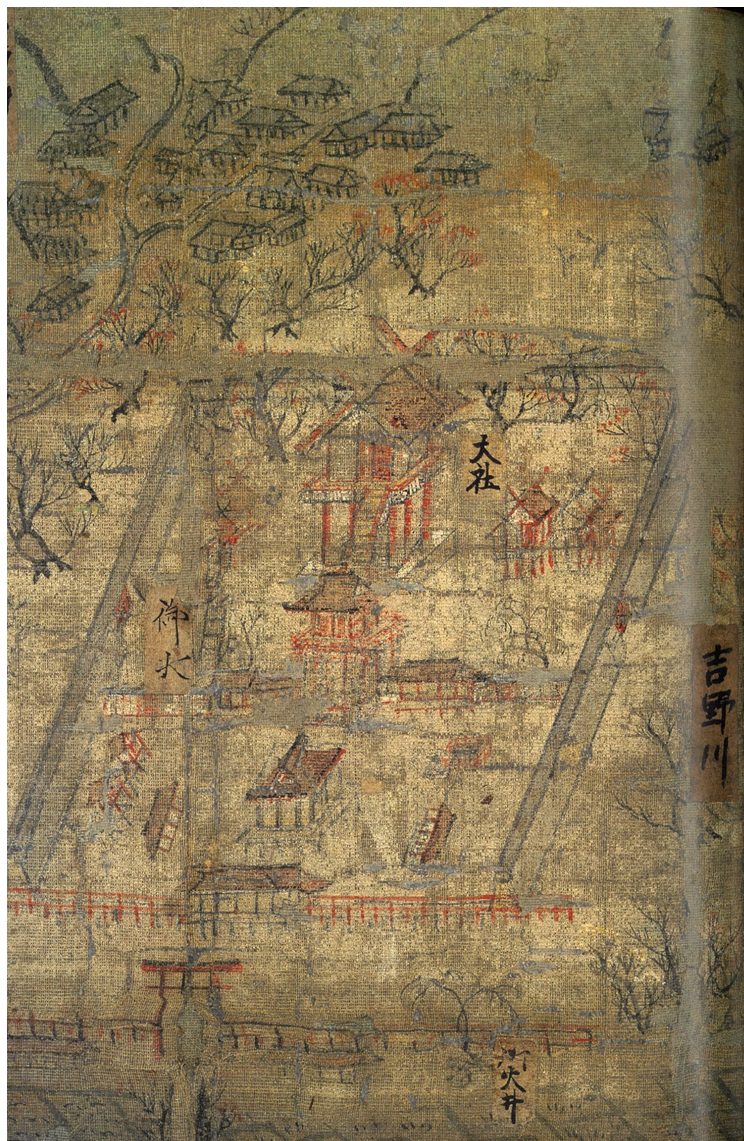 大社
御火
吉野川
御火井